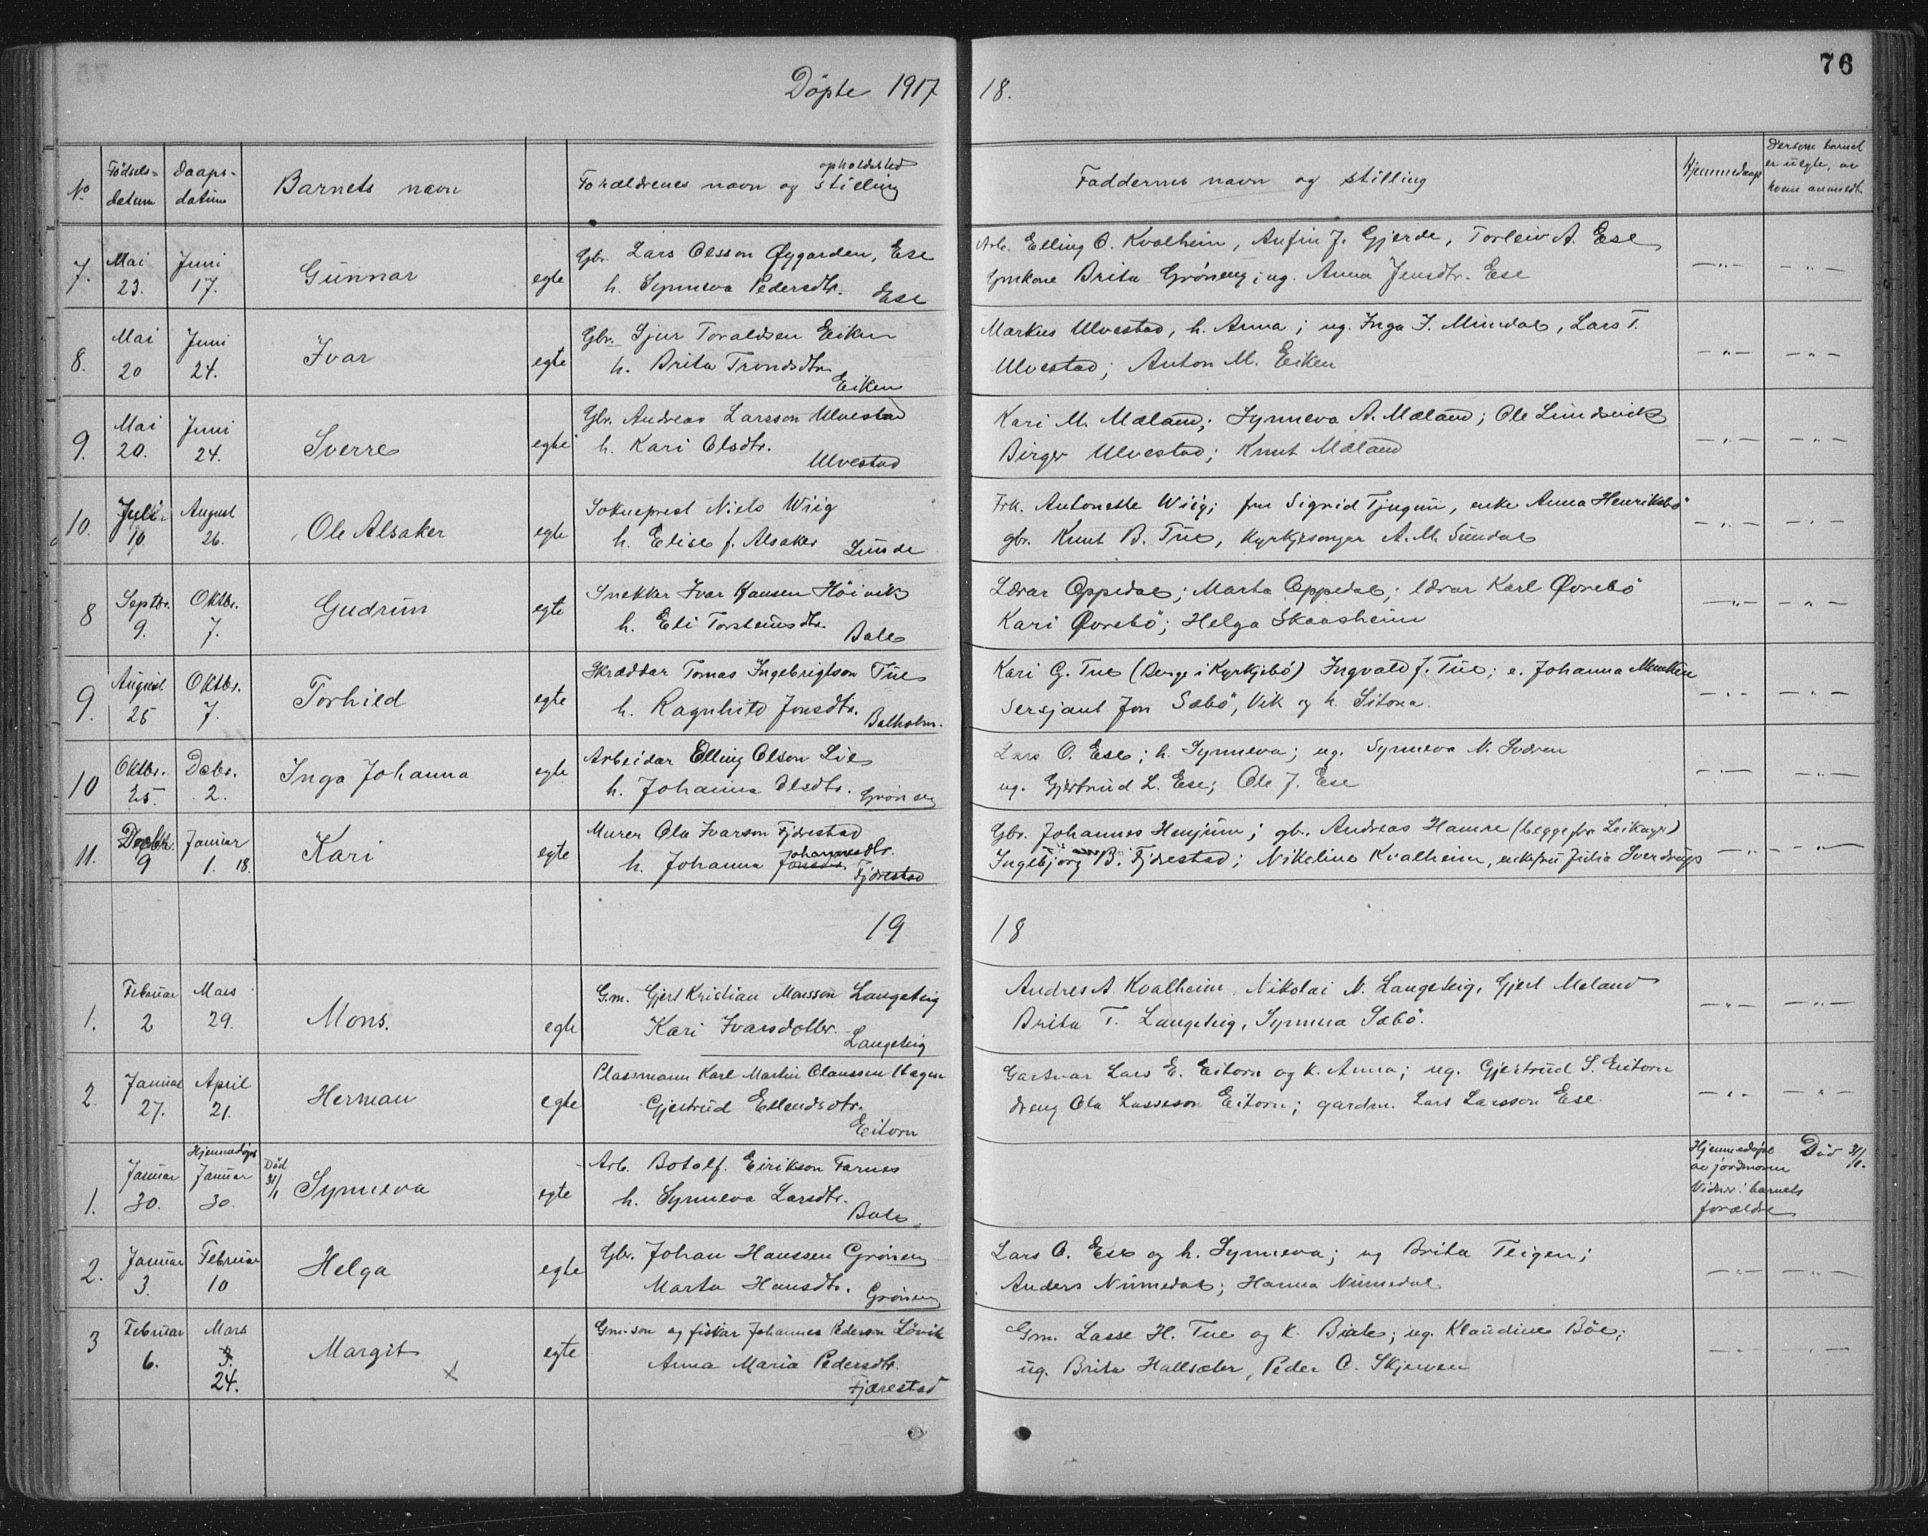 76
Döpte 1917 18.
No Födsels-datum Daaps-datum Barnets navn Forældrenes navn og opholdsted stilling Faddernes navn og stilling Hjemmedaap Dersom barnet er uegte, av hvem anmeldt
7. Mai 23. Juni 17. Gunnar egte Gbr. Lars Olsson Øygarden, Ese Arb. Elling O. Kvalheim, Anfin J. Gjerde, Torleiv A. Ese — " — — " —
h. Synneva Pedersdtr. Ese Gmkone Brita Grøneng; ug. Anna Jensdtr. Ese
8. Mai 20 Juni 24. Ivar egte Gbr. Sjur Toraldsen Eiken Markus Ulvestad, h. Anna; ug. Inga I. Mundal, Lars T. — " — — " —
h. Brita Trondsdtr. Eiken Ulvestad; Anton M. Eiken
9. Mai 20. Juni 24. Sverre egte Gbr. Andreas Larsson Ulvestad Kari M. Mæland; Synneva A. Mæland; Ole Lundsvik — " — — " —
h. Kari Olsdtr. Ulvestad Birger Ulvestad; Knut Mæland
10. Juli 10. August 26. Ole Alsaker egte Sokneprest Niels Wiig Frk. Antonette Wiig; fru Sigrid Tjugum, enke Anna Henriksbö — " — — " —
h. Elise f. Alsaker Lunde gbr. Knut B. Tue, Kyrkjesongar A. M. Sundal
8 Septbr. 9. Oktbr. 7. Gudrun egte Snekkar Ivar Hansen Höivik Lærar Oppedal; Marta Oppedal; lærar Karl Øvrebö — " — — " —
h. Eli Torsteinsdtr. Bale Kari Øvrebö; Helga Skaasheim
9. August 25 Oktbr. 7. Torhild egte Skræddar Tomas Ingebrigtson Tue Kari G. Tue (Berge i Kyrkjebö) Ingvald J. Tue; e. Johanna — " — — " —
h. Ragnhild Jonsdtr. Balholm. Sersjant Jon Sæbö, Vik og h.
10 Oktbr. 25. Decbr. 2. Inga Johanna egte Arbeidar Elling Olson Lie Lars O. Ese; h. Synneva; ug. Synneva N. — " — — " —
h. Johanna Olsdtr. Gröneng ug. Gjertrud L. Ese; Ole J. Ese
11. Decbr. 9 Januar 1. 18. Kari egte Murer Ola Ivarson Fjærestad Gbr. Johannes Henjum; gbr. Andreas Hamre (begge fra Leikanger) — " — — " —
h. Johanna Jonsdtr. Johannesdtr. Fjærestad Ingebjorg B. Fjærestad; Nikoline Kvalheim, enkefru Julia Sverdrup
19 18
1. Februar 2 Mars 29. Mons. egte Gm. Gjert Kristian Monsson Langeteig Andres A. Kvalheim, Nikolai N. Langeteig, Gjert Meland — " — — " —
Kari Ivarsdotter Langeteig Brita T. Langeteig, Synneva Sæbö.
2. Januar 27. April 21. Herman egte Plassmann Karl Martin Claussen Hagen Gartnar Lars E. Eitorn og k. Anna; ug. Gjertrud S. Eitorn — " — "
Gjertrud Erlendsdtr. Eitorn dreng Ola Lasseson Eitorn; gardm. Lars Larsson Ese
1. Januar 30. Hjemmedøpt Januar 30. Död 31/1 Synneva egte Arb. Botolf. Eirikson Farnes Hjemmedøpt av jordmoren Vidner: barnets forældre Död 31/1.
h. Synneva Larsdtr. Bale
2. Januar 3. Februar 10 Helga egte Gbr. Johan Hanssen Gröneng Lars O. Ese og h. Synneva; ug Brita Teigen; — " — — " —
Marta Hansdtr. Gröneng Anders Numedal; Hanna Numedal
3 Februar 6. Mars 3. 24. Margit x egte Gm.son og fiskar Johannes Pederson Lövik Gm. Lasse H. Tue og k. Beate; ug. Klaudine Böe; — " — — " —
Anna Maria Pedersdtr. Fjærestad ug. Brita Hallsæter, Peder O. Skjerven